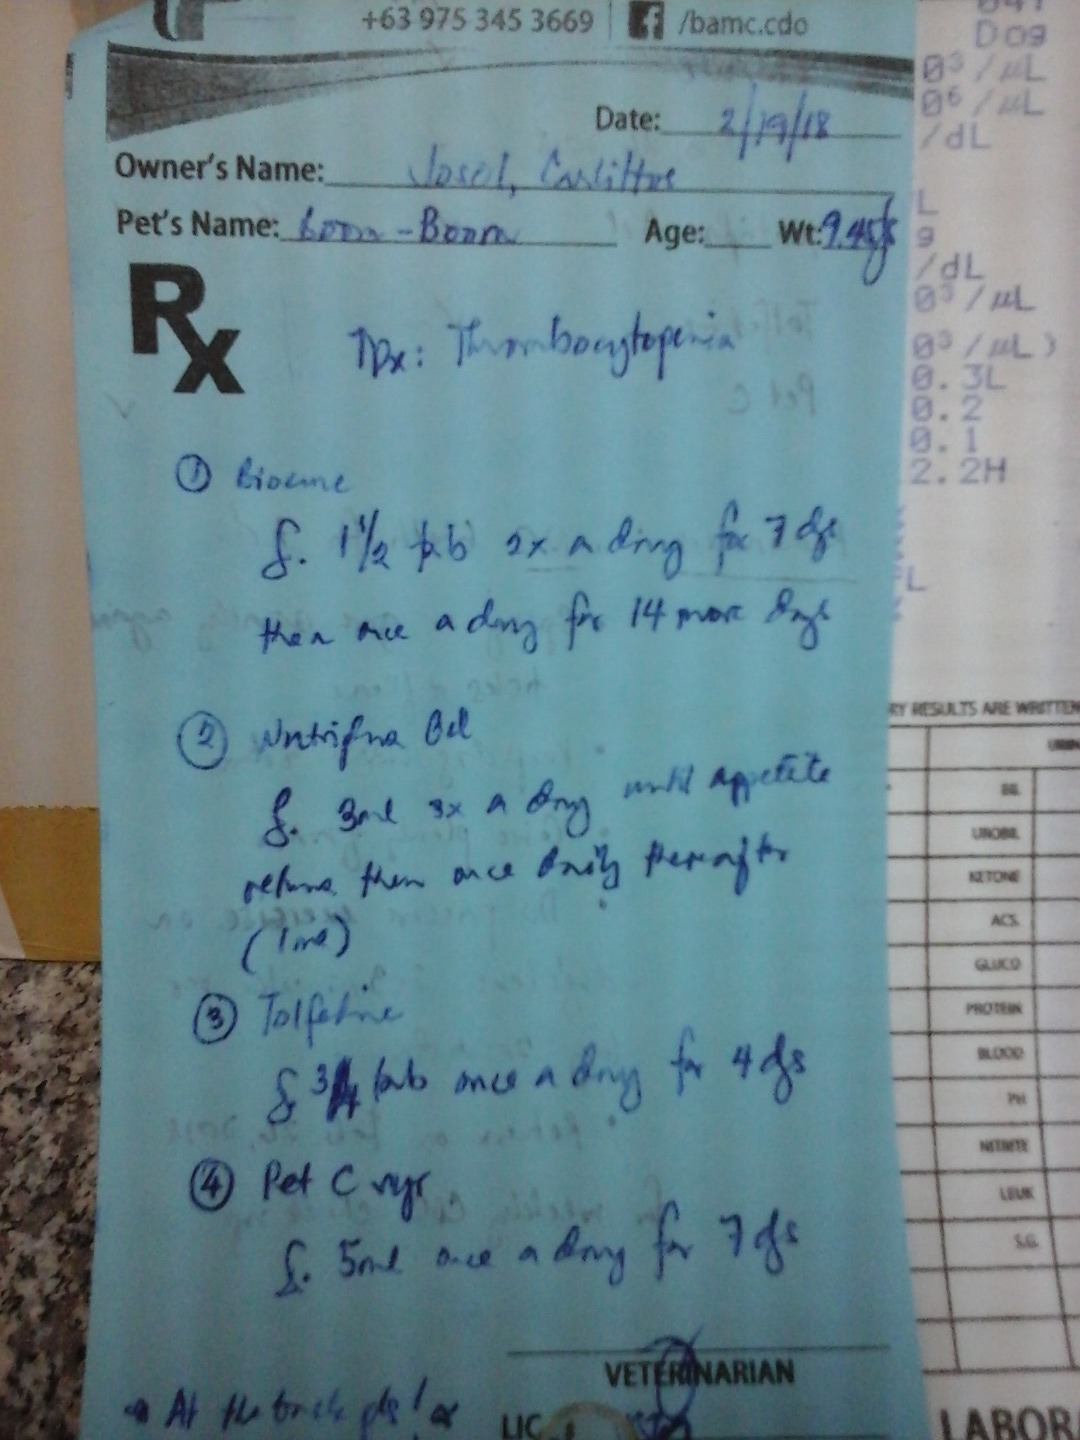 +63 975 345 3669 | /bamc.cdo
Date: 2/19/18
Owner's Name: Josol,
Pet's Name: Boom-Boom Age: Wt:
Rx
Thrombocytopenia
①
S. 1 1/2 tab 2x a day for 7 dys
then once a day for 14 more days
②
S. 3ml 3x a day until appetite
returns then once daily thereafter
(1ml)
③ Tolfedine
S. 3/4 tab once a day for 4 dys
④ Pet C syr
S. 5ml once a day for 7 dys
VETERINARIAN
At the back pls!
LIC
Dog
0³/µL
0⁶/µL
/dL
L
g
/dL
0³/µL
0³/µL)
0.3L
0.2
0.1
2.2H
L
RY RESULTS ARE WRITTEN
BIL
UROBIL
KETONE
ACS.
GLUCO
PROTEIN
BLOOD
PH
NITRITE
LEUK
S.G.
LABOR